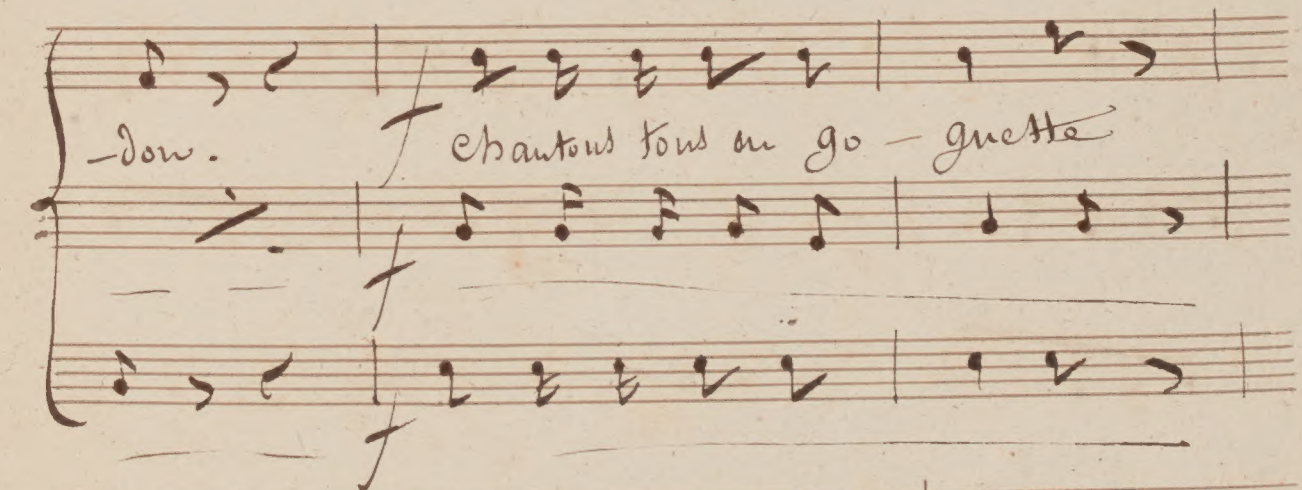 f
-don. chantons tous en go - guette
f
f